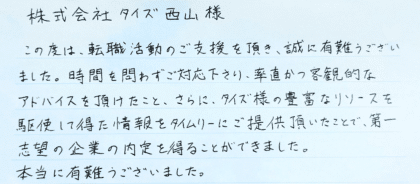 株式会社タイズ 西山様
この度は、転職活動のご支援を頂き、誠に有難うござい
ました。時間を問わずご対応下さり、率直かつ客観的な
アドバイスを頂けたこと、さらに、タイズ様の豊富なリソースを
駆使して得た情報をタイムリーにご提供頂いたことで、第一
志望の企業の内定を得ることができました。
本当に有難うございました。